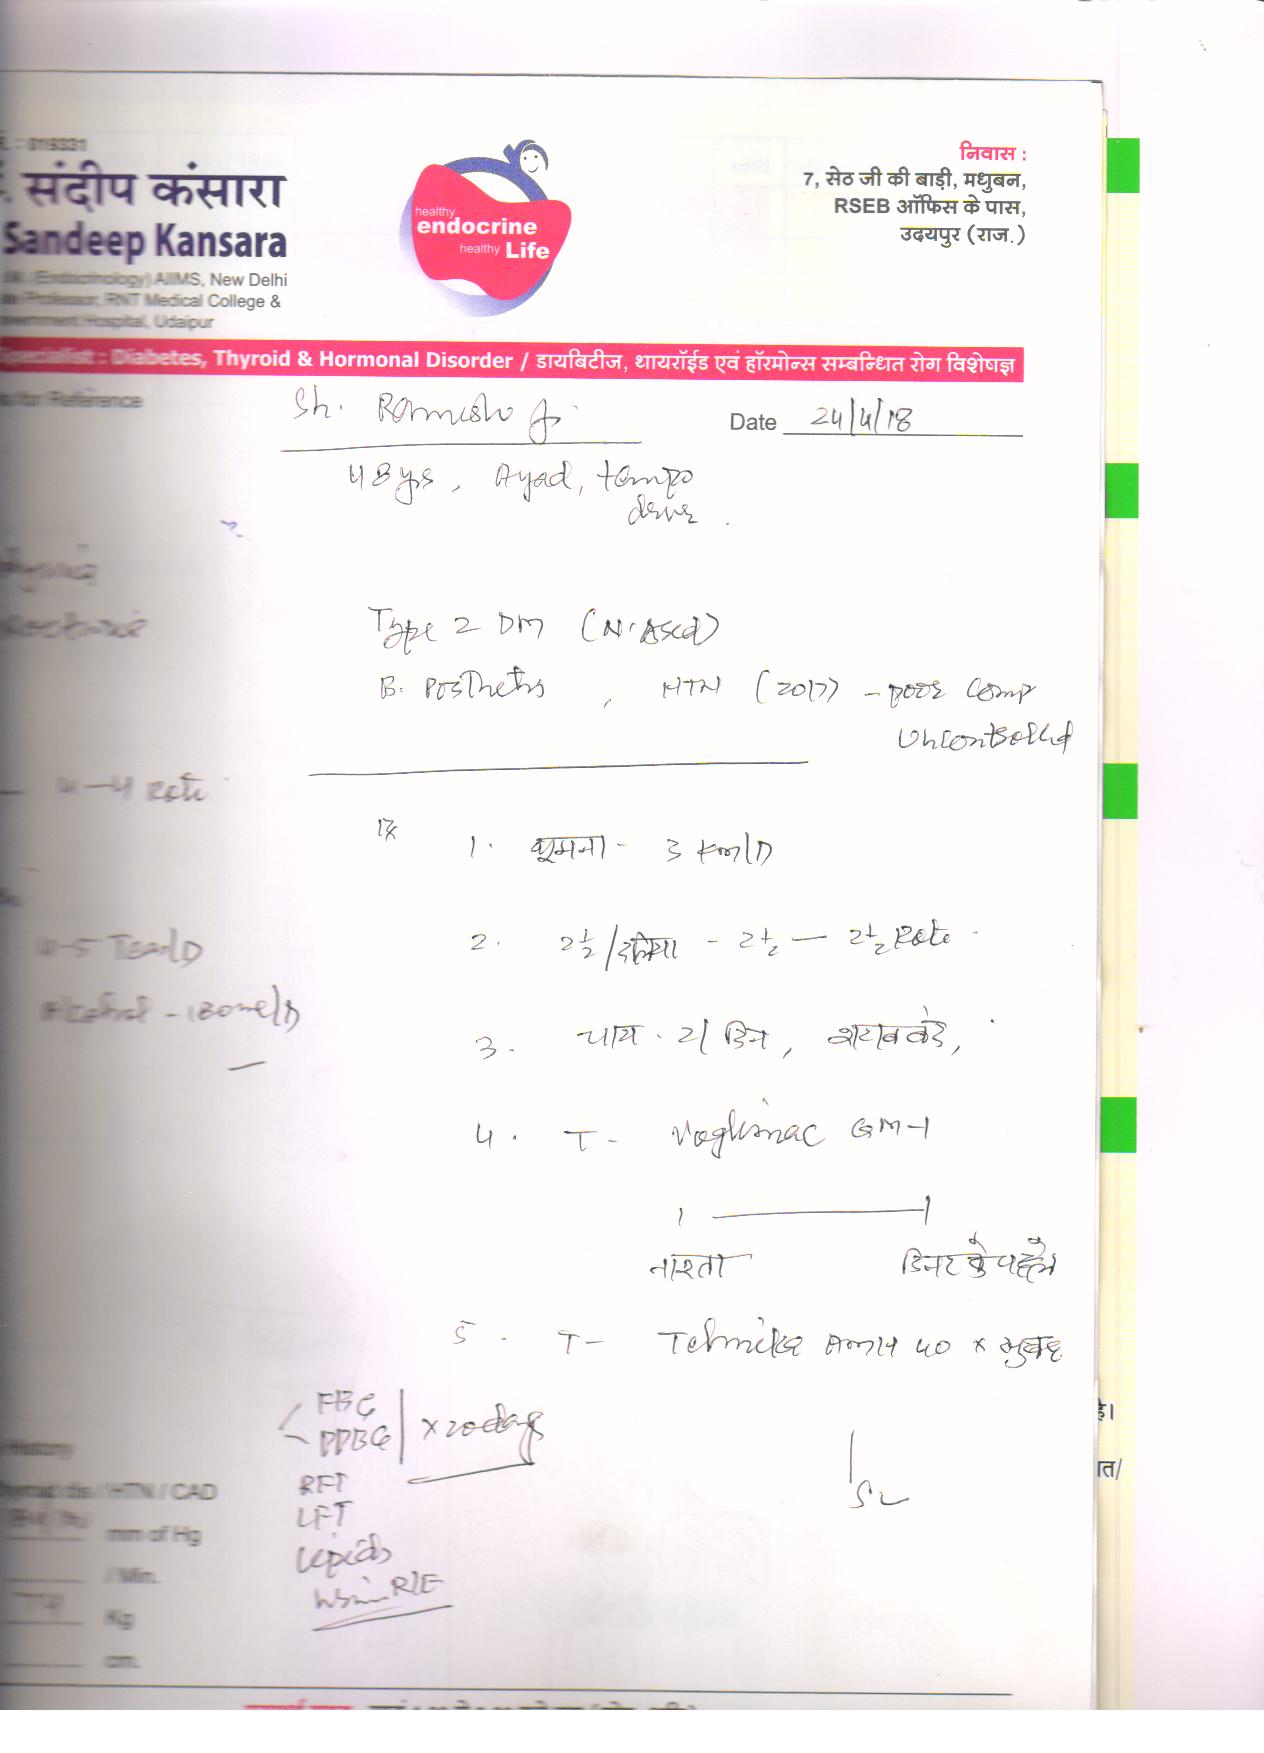 019331
संदीप कंसारा
Sandeep Kansara
(Endocrinology) AIIMS, New Delhi
Professor, RNT Medical College &
Government Hospital, Udaipur
healthy
endocrine
healthy Life
निवास :
7, सेठ जी की बाड़ी, मधुबन,
RSEB ऑफिस के पास,
उदयपुर (राज.)
Specialist : Diabetes, Thyroid & Hormonal Disorder / डायबिटीज, थायरॉईड एवं हॉरमोन्स सम्बन्धित रोग विशेषज्ञ
for Reference
Sh. Ramesh Ji
Date 24/4/18
48 yrs, Ayad, tempo
Type 2 DM
B. Posthetis, HTN (2017) - poor comp
Uncontrolled
4-4 Roti
Rx
1. घूमना - 3 Km/D
2. 2½/दलिया - 2½ — 2½ Roti
4-5 Tea/D
Alcohol - 180ml/D
3. चाय - 2/दिन, शराब बंद,
4. T- Voglimac GM-1
1 — 1
नाश्ता डिनर के पहले
5. T- Telmikza AMH 40 x सुबह
FBG
PPBG x 20 days
RFT
LFT
Lipids
Urine R/E
History
dis / HTN / CAD
mm of Hg
/ Min.
74 Kg
cm.
है।